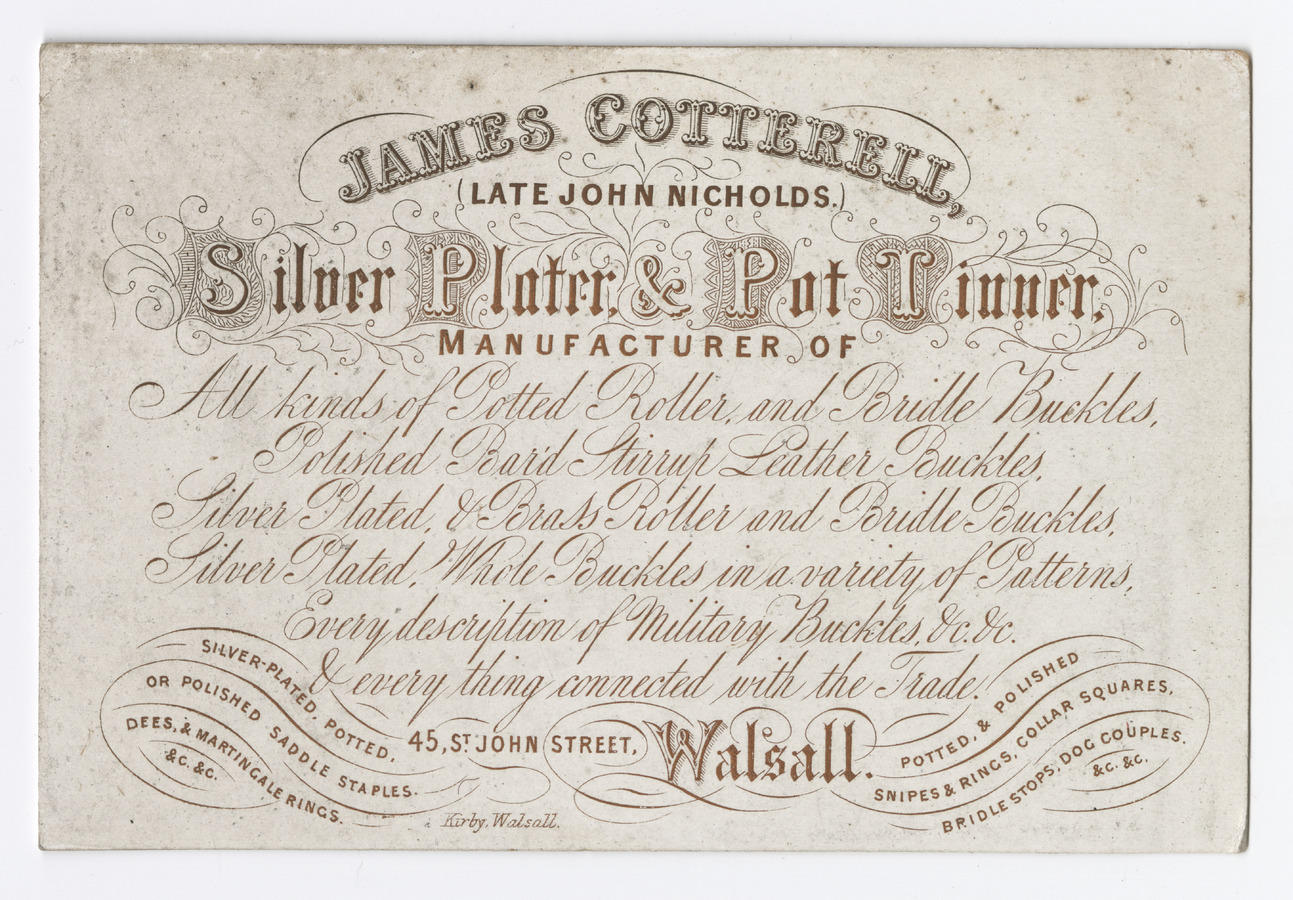 JAMES COTTERELL,
(LATE JOHN NICHOLDS.)
Silver Plater, & Pot Tinner,
MANUFACTURER OF
All kinds of Potted Roller, and Bridle Buckles,
Polished Bard Stirrup Leather Buckles,
Silver Plated, & Brass Roller and Bridle Buckles,
Silver Plated, Whole Buckles in a variety of Patterns,
Every description of Military Buckles, &c. &c.
& every thing connected with the Trade.
SILVER-PLATED, POTTED,
OR POLISHED SADDLE STAPLES.
DEES, & MARTINGALE RINGS.
&C. &C.
45, ST JOHN STREET, Walsall.
POTTED, & POLISHED
SNIPES & RINGS, COLLAR SQUARES,
BRIDLE STOPS, DOG COUPLES.
&c. &c.
Kirby, Walsall.